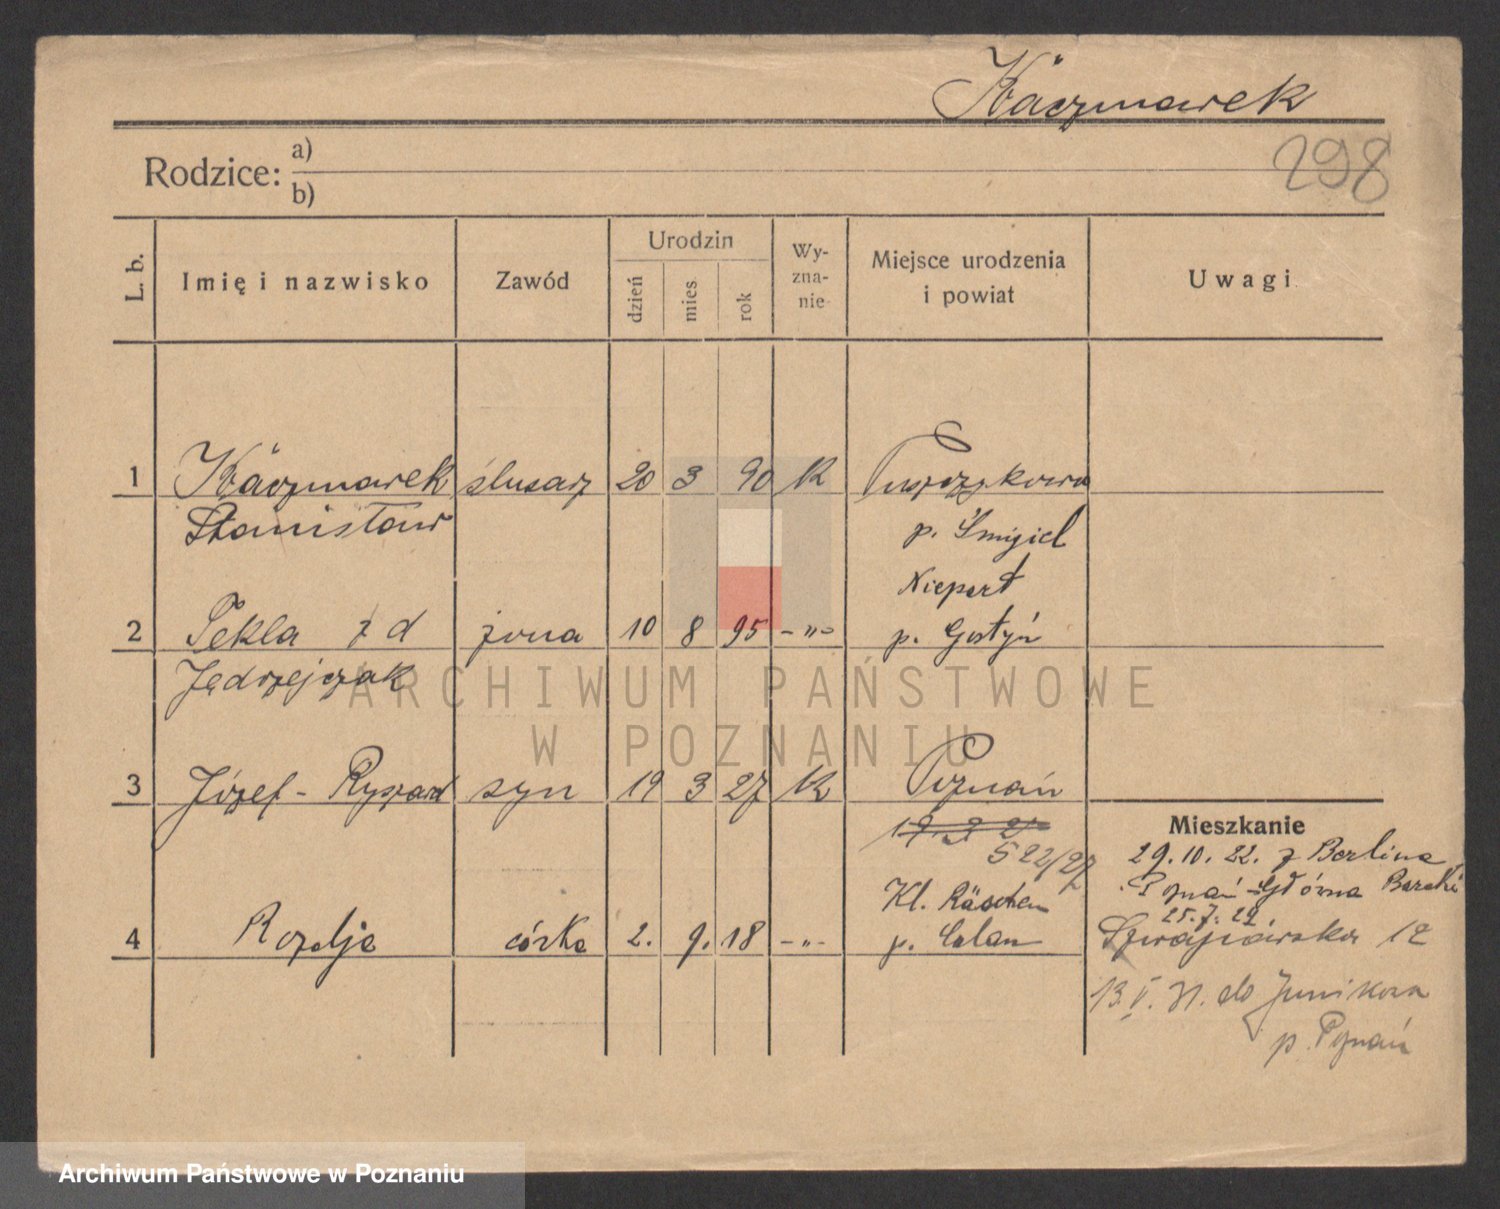 Kaczmarek
298
Rodzice: a)
b)
L. b. Imię i nazwisko Zawód Urodzin dzień mies. rok Wyznanie Miejsce urodzenia i powiat Uwagi
1 Kaczmarek ślusarz 20 3 90 K Puszczykowo
Stanisław p. Śmigiel
Niepart
2 Tekla z d żona 10 8 95 -„- p. Gostyń
Jędrzejczak
ARCHIWUM PAŃSTWOWE
W POZNANIU
3 Józef - Ryszard syn 19 3 27 K Poznań
Mieszkanie
522/27
29.10.22. z Berlina
Kl. Räschen
Poznań-Główna Baraki
25.7.29
4 Rozalja córka 2. 9. 18 -„- p. Calau
Szwajcarska 12
13.V.31. do Junikowa
p. Poznań
Archiwum Państwowe w Poznaniu